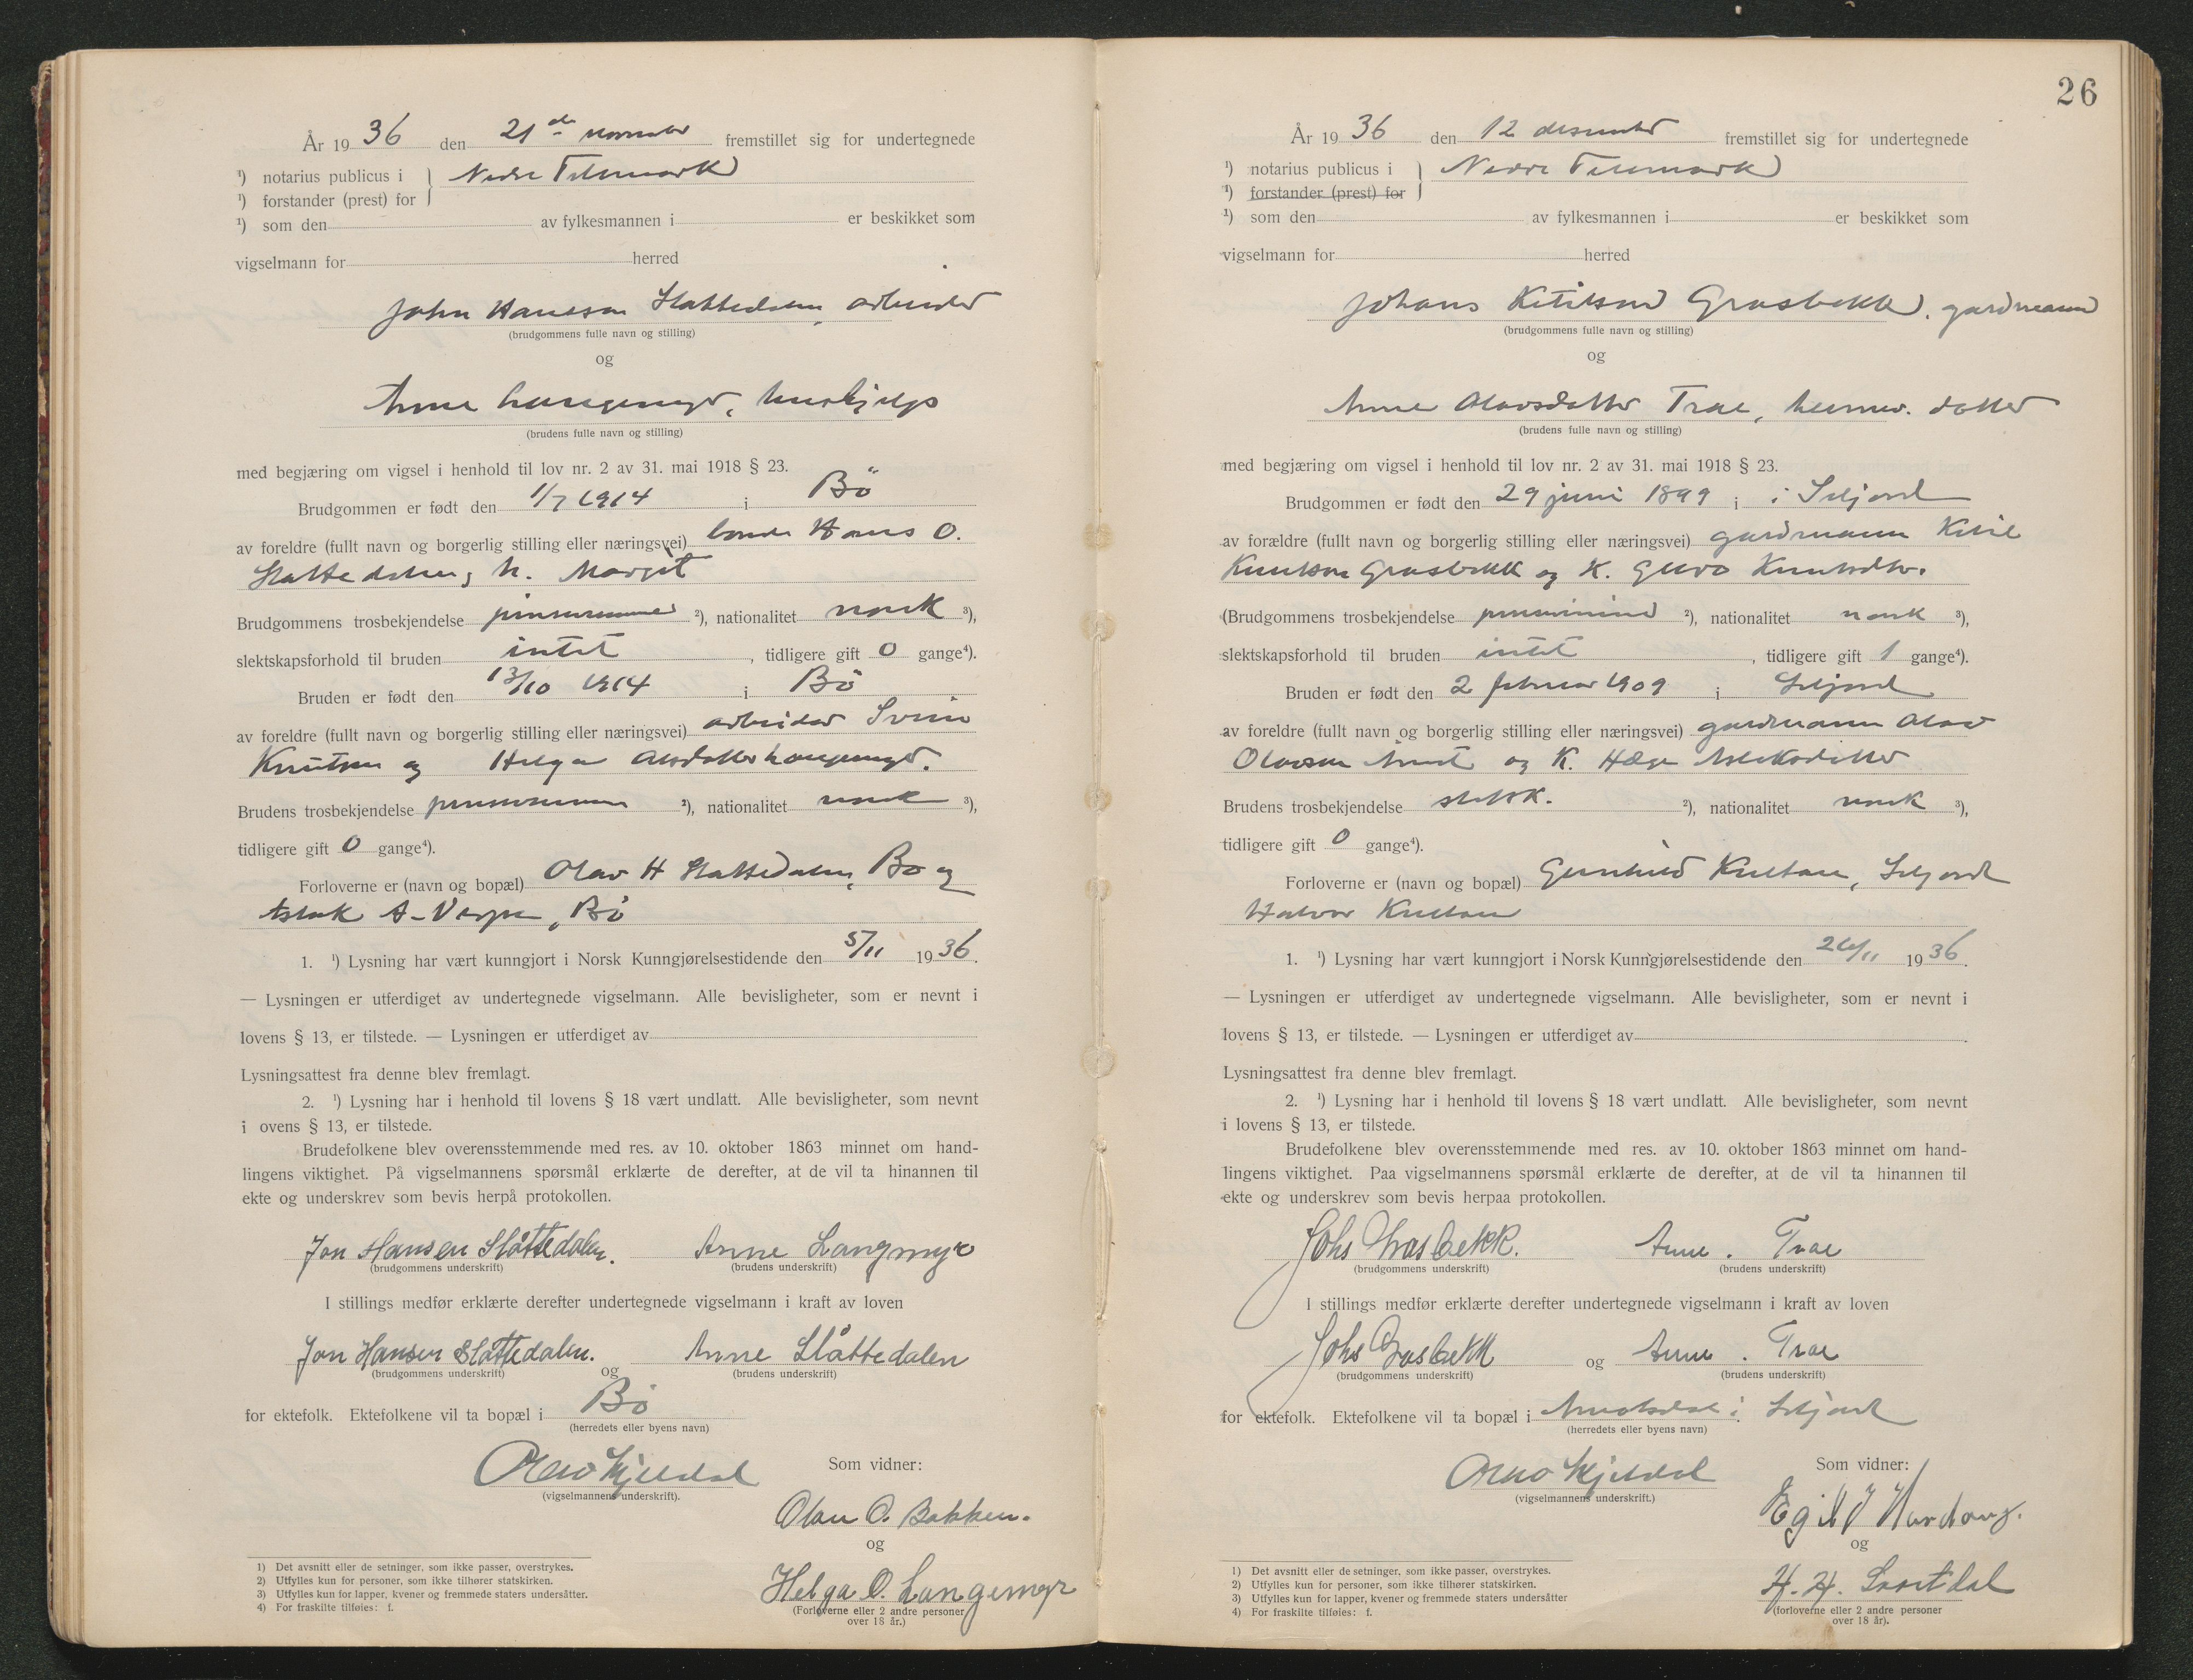 År 19 36 den 21de november fremstillet sig for undertegnede
¹) notarius publicus i } Nedre Telemark
¹) forstander (prest) for
¹) som den av fylkesmannen i er beskikket som
vigselmann for herred
John Hansson Slattedalen, arbeider
(brudgommens fulle navn og stilling)
og
Anne Langemyr, hushjelp
(brudens fulle navn og stilling)
med begjæring om vigsel i henhold til lov nr. 2 av 31. mai 1918 § 23.
Brudgommen er født den 1/7 1914 i Bö
av foreldre (fullt navn og borgerlig stilling eller næringsvei) bonde Hans O.
Slattedalen, h. Margit
Brudgommens trosbekjendelse pinsevenner ²), nationalitet norsk ³),
slektskapsforhold til bruden intet, tidligere gift 0 gange⁴).
Bruden er født den 13/10 1914 i Bö
av foreldre (fullt navn og borgerlig stilling eller næringsvei) arbeider Svein
Knutsen og Helga Olsdatter Langemyr.
Brudens trosbekjendelse pinsevenner ²), nationalitet norsk ³),
tidligere gift 0 gange⁴).
Forloverne er (navn og bopæl) Olav H Slattedalen, Bø og
Aslak A. Verpe, Bö
1. ¹) Lysning har vært kunngjort i Norsk Kunngjørelsestidende den 5/11 1936.
— Lysningen er utferdiget av undertegnede vigselmann. Alle bevisligheter, som er nevnt i
lovens § 13, er tilstede. — Lysningen er utferdiget av
Lysningsattest fra denne blev fremlagt.
2. ¹) Lysning har i henhold til lovens § 18 vært undlatt. Alle bevisligheter, som nevnt
i ovens § 13, er tilstede.
Brudefolkene blev overensstemmende med res. av 10. oktober 1863 minnet om hand-
lingens viktighet. På vigselmannens spørsmål erklærte de derefter, at de vil ta hinannen til
ekte og underskrev som bevis herpå protokollen.
Jon Hansen Slåttedalen. Anne Langmyr
(brudgommens underskrift) (brudens underskrift)
I stillings medfør erklærte derefter undertegnede vigselmann i kraft av loven
Jon Hansen Slåttedalen. og Anne Slåttedalen
(brudgommens underskrift) (brudens underskrift)
for ektefolk. Ektefolkene vil ta bopæl i Bö
(herredets eller byens navn)
Olav Kjeldal Som vidner:
(vigselmannens underskrift).
Olav O. Bakken.
og
Helga O. Langemyr
(Forloverne eller 2 andre personer
over 18 år.)
1) Det avsnitt eller de setninger, som ikke passer, overstrykes.
2) Utfylles kun for personer, som ikke tilhører statskirken.
3) Utfylles kun for lapper, kvener og fremmede staters undersåtter.
4) For fraskilte tilføies: f.
26
År 19 36 den 12 desember fremstillet sig for undertegnede
¹) notarius publicus i } Nedre Telemark
¹) forstander (prest) for
¹) som den av fylkesmannen i er beskikket som
vigselmann for herred
Johans Ketilson Grasbekk, gardmann
(brudgommens fulle navn og stilling)
og
Anne Olavsdatter Trae, heimev. datter
(brudens fulle navn og stilling)
med begjæring om vigsel i henhold til lov nr. 2 av 31. mai 1918 § 23.
Brudgommen er født den 29 juni 1899 i i Seljord
av forældre (fullt navn og borgerlig stilling eller næringsvei) gardmann Ketil
Knutson Grasbekk og K. Guro Knutsdtr.
(Brudgommens trosbekjendelse pinsevenn ²), nationalitet norsk ³),
slektskapsforhold til bruden intet, tidligere gift 1 gange⁴).
Bruden er født den 2 februar 1909 i Seljord
av foreldre (fullt navn og borgerlig stilling eller næringsvei) gardmann Olav
Olavson og K. Hæge Aslaksdatter
Brudens trosbekjendelse statsk. ²), nationalitet norsk ³),
tidligere gift 0 gange⁴).
Forloverne er (navn og bopæl) Gunhild, Seljord
Halvor
1. ¹) Lysning har vært kunngjort i Norsk Kunngjørelsestidende den 26/11 1936.
— Lysningen er utferdiget av undertegnede vigselmann. Alle bevisligheter, som er nevnt i
lovens § 13, er tilstede. — Lysningen er utferdiget av
Lysningsattest fra denne blev fremlagt.
2. ¹) Lysning har i henhold til lovens § 18 vært undlatt. Alle bevisligheter, som nevnt
i lovens § 13, er tilstede.
Brudefolkene blev overensstemmende med res. av 10. oktober 1863 minnet om hand-
lingens viktighet. Paa vigselmannens spørsmål erklærte de derefter, at de vil ta hinannen til
ekte og underskrev som bevis herpaa protokollen.
Johs Grasbekk. Anne. Trae
(brudgommens underskrift) (brudens underskrift)
I stillings medfør erklærte derefter undertegnede vigselmann i kraft av loven
Johs Grasbekk og Anne. Trae
(brudgommens underskrift) (brudens underskrift)
for ektefolk. Ektefolkene vil ta bopæl i i Seljord
(herredets eller byens navn)
Olav Kjeldal Som vidner:
(vigselmannens underskrift.)
Egil
og
H. H. Svartdal
(forloverne eller 2 andre personer
over 18 år).
1) Det avsnitt eller de setninger, som ikke passer, overstrykes.
2) Utfylles kun for personer, som ikke tilhører statskirken.
3) Utfylles kun for lapper, kvener og fremmede staters undersåtter
4) For fraskilte tilføies: f.